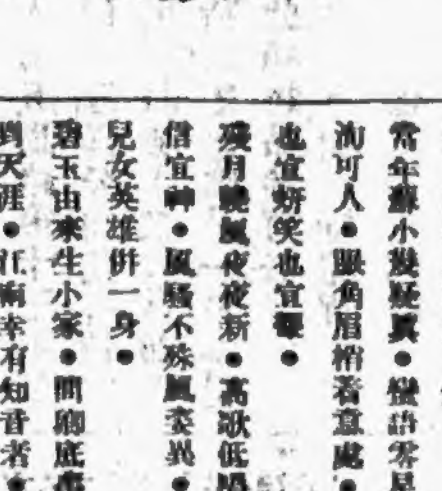 常年蘇小發疑眞●蠻語零星
洵可人●眼角眉梢着意處●
也宜姸笑也宜顰●
殘月曉風夜夜新●高歌低唱
信宜神●風騷不殊風 異●
兒女英雄倂一身●
碧玉由來生小家●問 底
到天涯● 有知音者●